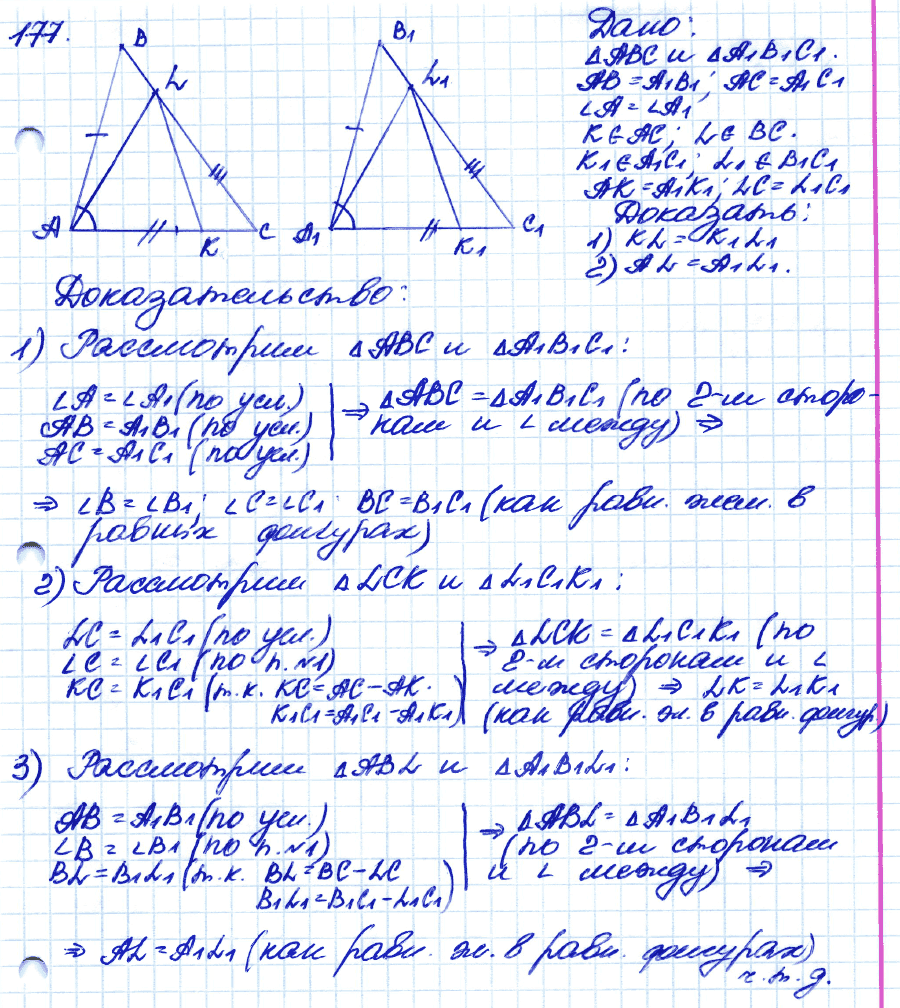 177.
B
L
A
K
C
B₁
L₁
A₁
K₁
C₁
Дано:
△ABC и △A₁B₁C₁.
AB = A₁B₁; AC = A₁C₁
∠A = ∠A₁
K ∈ AC; L ∈ BC.
K₁ ∈ A₁C₁; L₁ ∈ B₁C₁
AK = A₁K₁; LC = L₁C₁
Доказать:
1) KL = K₁L₁
2) AL = A₁L₁.
Доказательство:
1) Рассмотрим △ABC и △A₁B₁C₁:
∠A = ∠A₁ (по усл.)
AB = A₁B₁ (по усл.)
AC = A₁C₁ (по усл.)
⇒ △ABC = △A₁B₁C₁ (по 2-м сторо-
нам и ∠ между) ⇒
⇒ ∠B = ∠B₁; ∠C = ∠C₁; BC = B₁C₁ (как равн. элем. в
равных фигурах)
2) Рассмотрим △LCK и △L₁C₁K₁:
LC = L₁C₁ (по усл.)
∠C = ∠C₁ (по п.№1)
KC = K₁C₁ (т.к. KC = AC - AK.
K₁C₁ = A₁C₁ - A₁K₁)
⇒ △LCK = △L₁C₁K₁ (по
2-м сторонам и ∠
между) ⇒ LK = L₁K₁
(как равн. эл. в равн. фигур)
3) Рассмотрим △ABL и △A₁B₁L₁:
AB = A₁B₁ (по усл.)
∠B = ∠B₁ (по п.№1)
BL = B₁L₁ (т.к. BL = BC - LC
B₁L₁ = B₁C₁ - L₁C₁)
⇒ △ABL = △A₁B₁L₁
(по 2-м сторонам
и ∠ между) ⇒
⇒ AL = A₁L₁ (как равн. эл. в равн. фигурах)
ч.т.д.